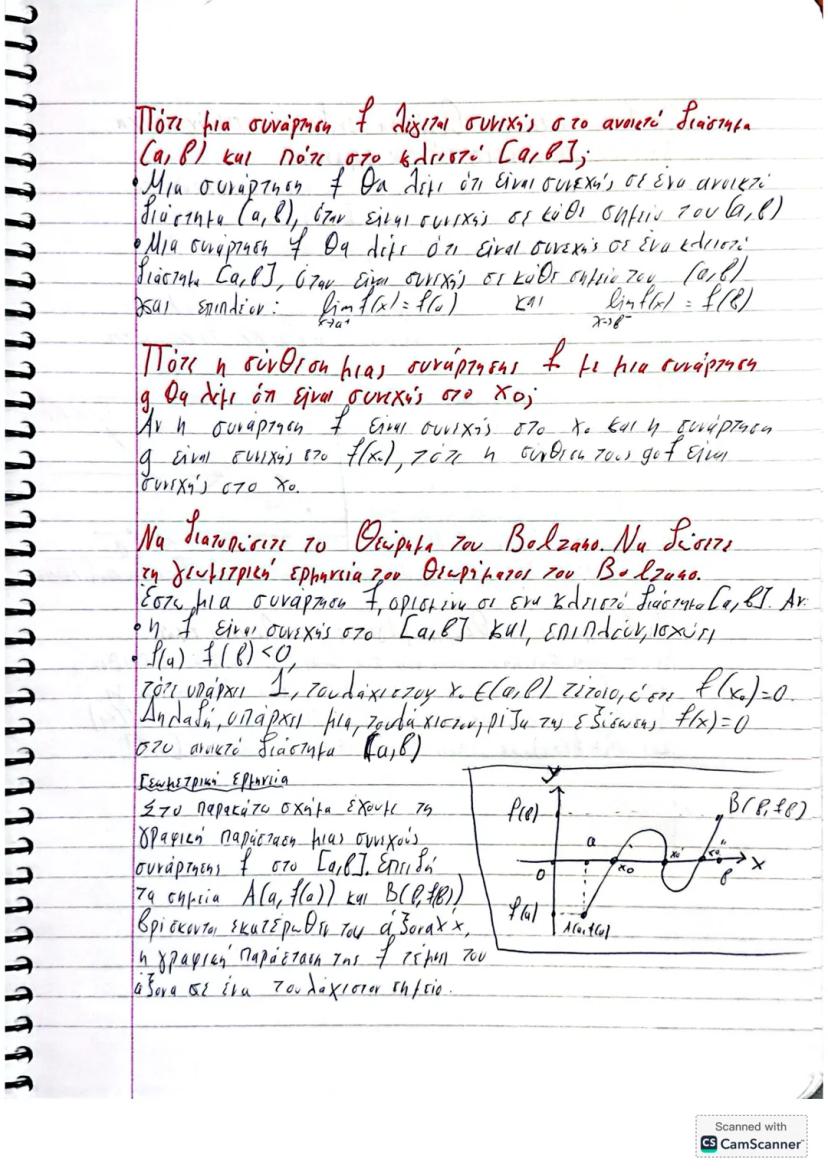 Πότε μια συνάρτηση f λέγεται συνεχής στο ανοικτό διάστημα
(α,β) και πότε στο κλειστό [α,β];
• Μια συνάρτηση f θα λέμε ότι είναι συνεχής σε ένα ανοικτό
διάστημα (α,β), όταν είναι συνεχής σε κάθε σημείο του (α,β)
• Μια συνάρτηση f θα λέμε ότι είναι συνεχής σε ένα κλειστό
διάστημα [α,β], όταν είναι συνεχής σε κάθε σημείο του (α,β)
και επιπλέον: lim f(x) = f(α) και lim f(x) = f(β)
x→α⁺ x→β⁻
Πότε η σύνθεση μιας συνάρτησης f με μια συνάρτηση
g θα λέμε ότι είναι συνεχής στο x₀;
Αν η συνάρτηση f είναι συνεχής στο x₀ και η συνάρτηση
g είναι συνεχής στο f(x₀), τότε η σύνθεση τους gof είναι
συνεχής στο x₀.
Να διατυπώσετε το Θεώρημα του Bolzano. Να δώσετε
τη γεωμετρική ερμηνεία του Θεωρήματος του Bolzano.
Έστω μια συνάρτηση f, ορισμένη σε ένα κλειστό διάστημα [α,β]. Αν:
• η f είναι συνεχής στο [α,β] και, επιπλέον, ισχύει
• f(α) f(β) < 0,
τότε υπάρχει 1, τουλάχιστον x₀ ∈ (α,β) τέτοιο, ώστε f(x₀) = 0.
Δηλαδή, υπάρχει μια, τουλάχιστον, ρίζα της εξίσωσης f(x) = 0
στο ανοικτό διάστημα (α,β)
Γεωμετρική Ερμηνεία
Στο παρακάτω σχήμα έχουμε τη
γραφική παράσταση μιας συνεχούς
συνάρτησης f στο [α,β]. Επειδή
τα σημεία A(α, f(α)) και B(β, f(β))
βρίσκονται εκατέρωθεν του άξονα x'x,
η γραφική παράσταση της f τέμνει τον
άξονα σε ένα τουλάχιστον σημείο.
y
f(β)
B(β, f(β))
α
O
x₀
x₀'
x₀''
β
x
f(α)
A(α, f(α))
Scanned with
CS CamScanner